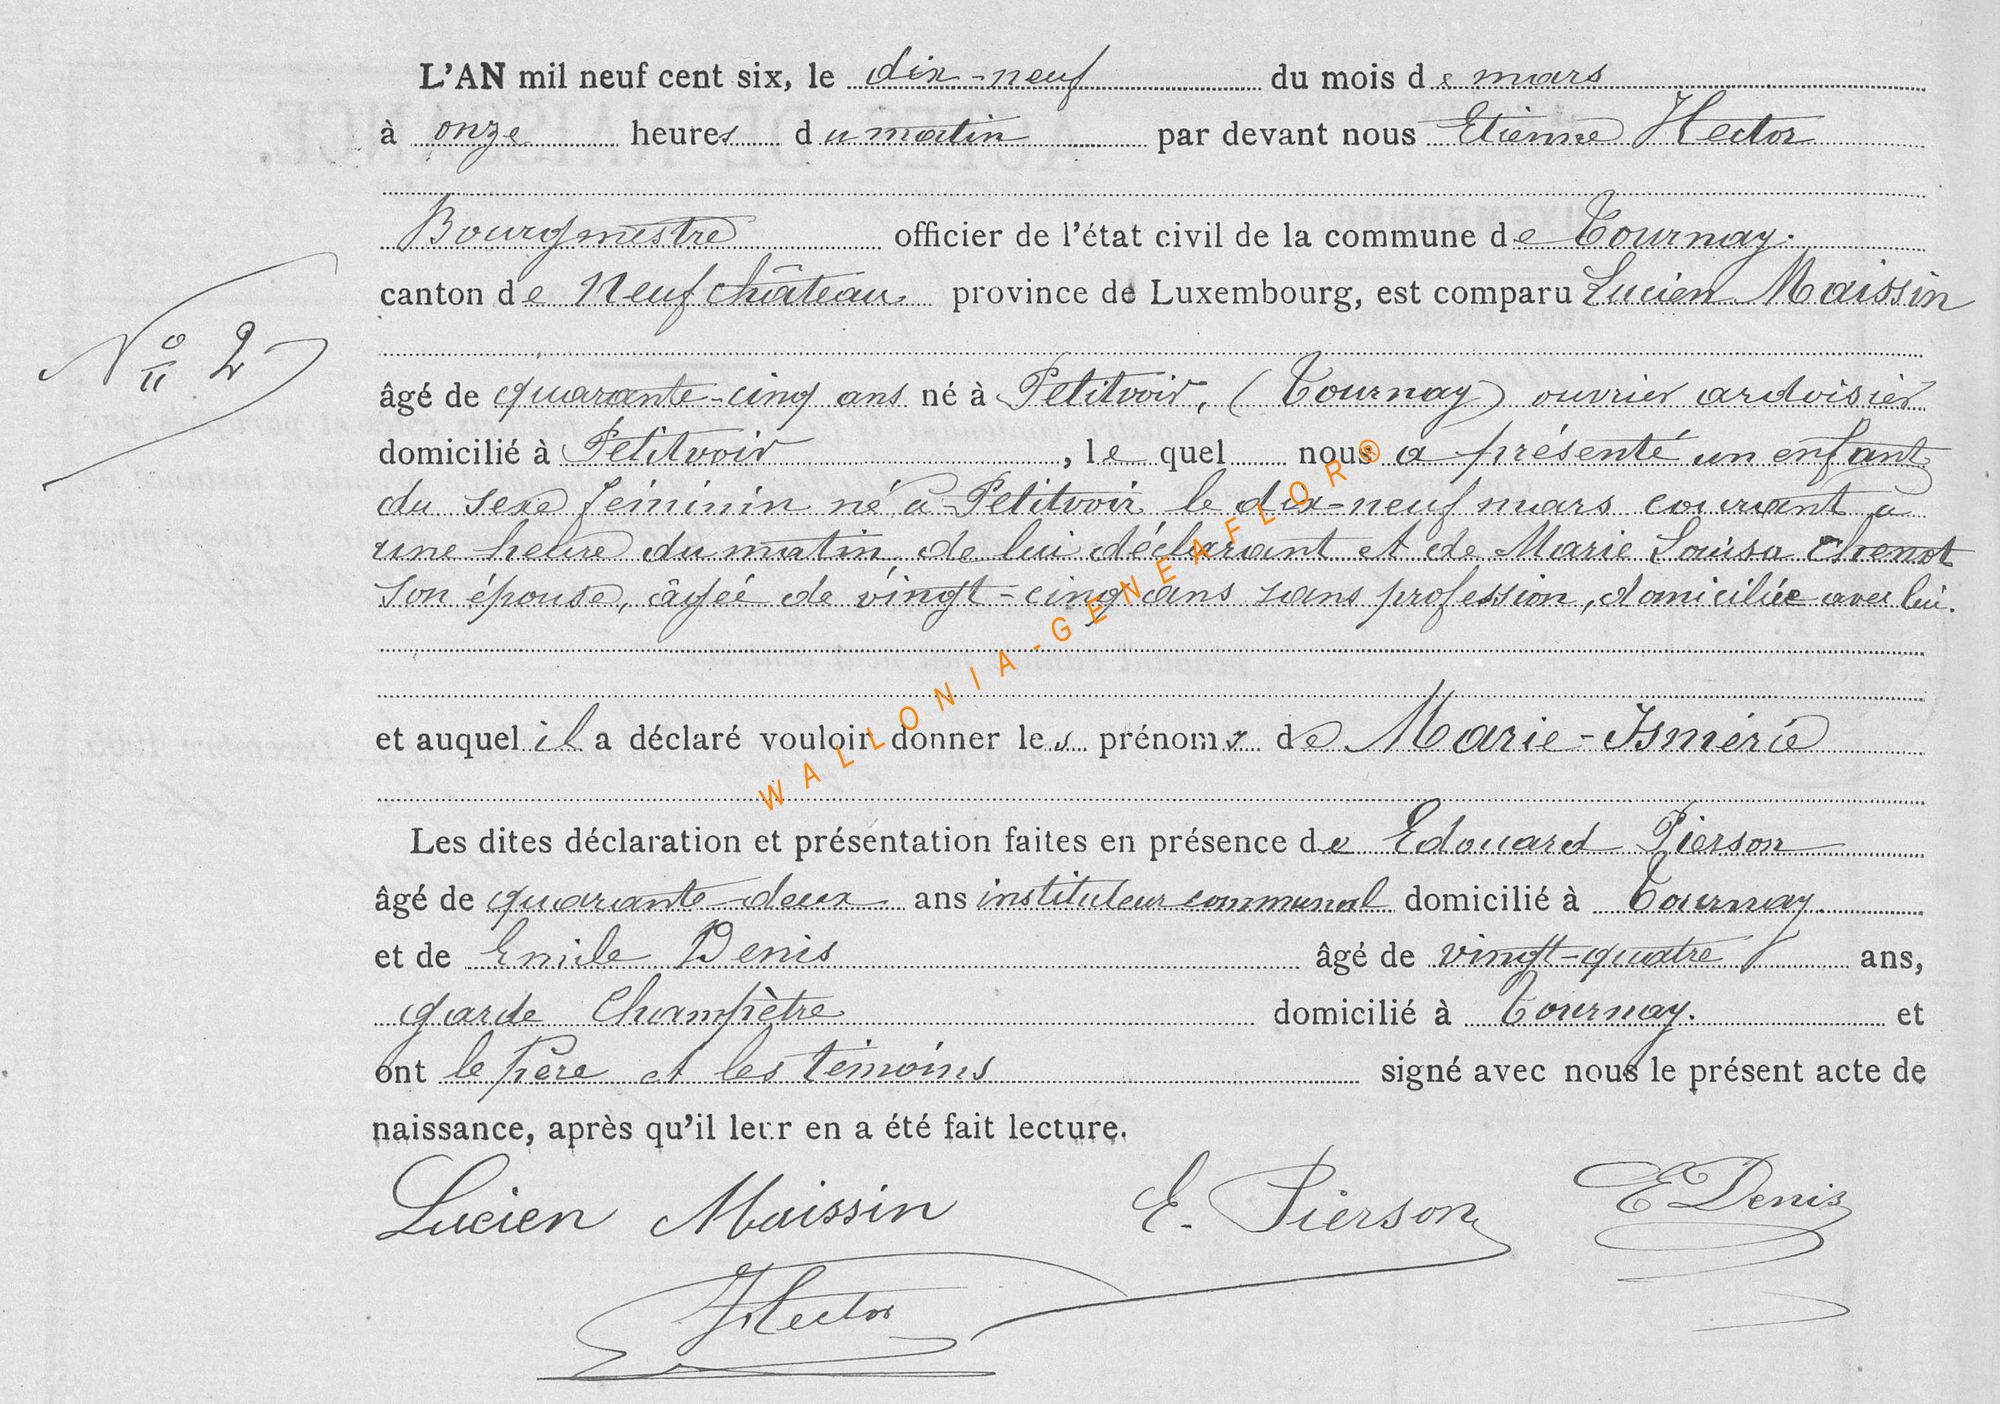 L'AN mil neuf cent six, le dix-neuf du mois de mars
à onze heures du matin par devant nous Etienne Hector
Bourgmestre officier de l'état civil de la commune de Tournay.
canton de Neufchâteau province de Luxembourg, est comparu Lucien Maissin
N° 2
âgé de quarante-cinq ans né à Petitvoir, (Tournay) ouvrier ardoisier
domicilié à Petitvoir, le quel nous a présenté un enfant
du sexe féminin né à Petitvoir le dix-neuf mars courant à
une heure du matin de lui déclarant et de Marie Louisa Chenot
son épouse, âgée de vingt-cinq ans sans profession, domiciliée avec lui.
et auquel il a déclaré vouloir donner les prénoms de Marie-Ismérie
Les dites déclaration et présentation faites en présence de Edouard Pierson
âgé de quarante-deux ans instituteur communal domicilié à Tournay
et de Emile Denis âgé de vingt-quatre ans,
garde Champètre domicilié à Tournay. et
ont le Père et les témoins signé avec nous le présent acte de
naissance, après qu'il leur en a été fait lecture.
Lucien Maissin E. Pierson E Denis
Hector
WALLONIA-GENEAFLOR®